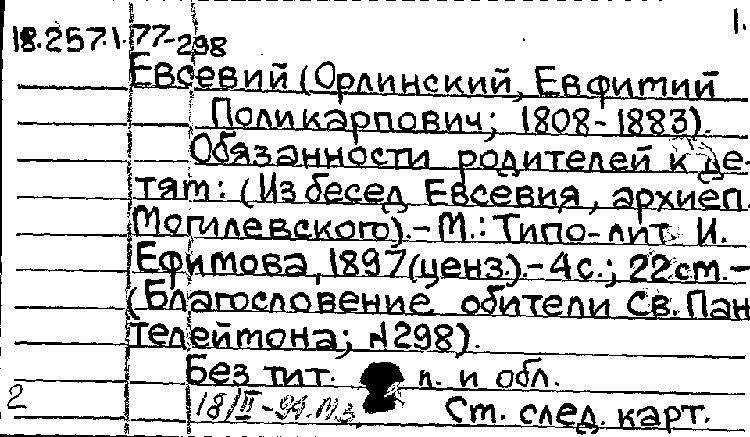 1.
18.257.1.77-298
Евсевий (Орлинский, Евфитий
Поликарпович; 1808-1883).
Обязанности родителей к де-
тям: (Из бесед Евсевия, архиеп.
Могилевского).-М.: Типо-лит. И.
Ефимова, 1897(ценз.).-4с.; 22см.-
(Благословение обители Св. Пан
телеймона; №298).
Без тит. л. и обл.
2
Ст. след. карт.